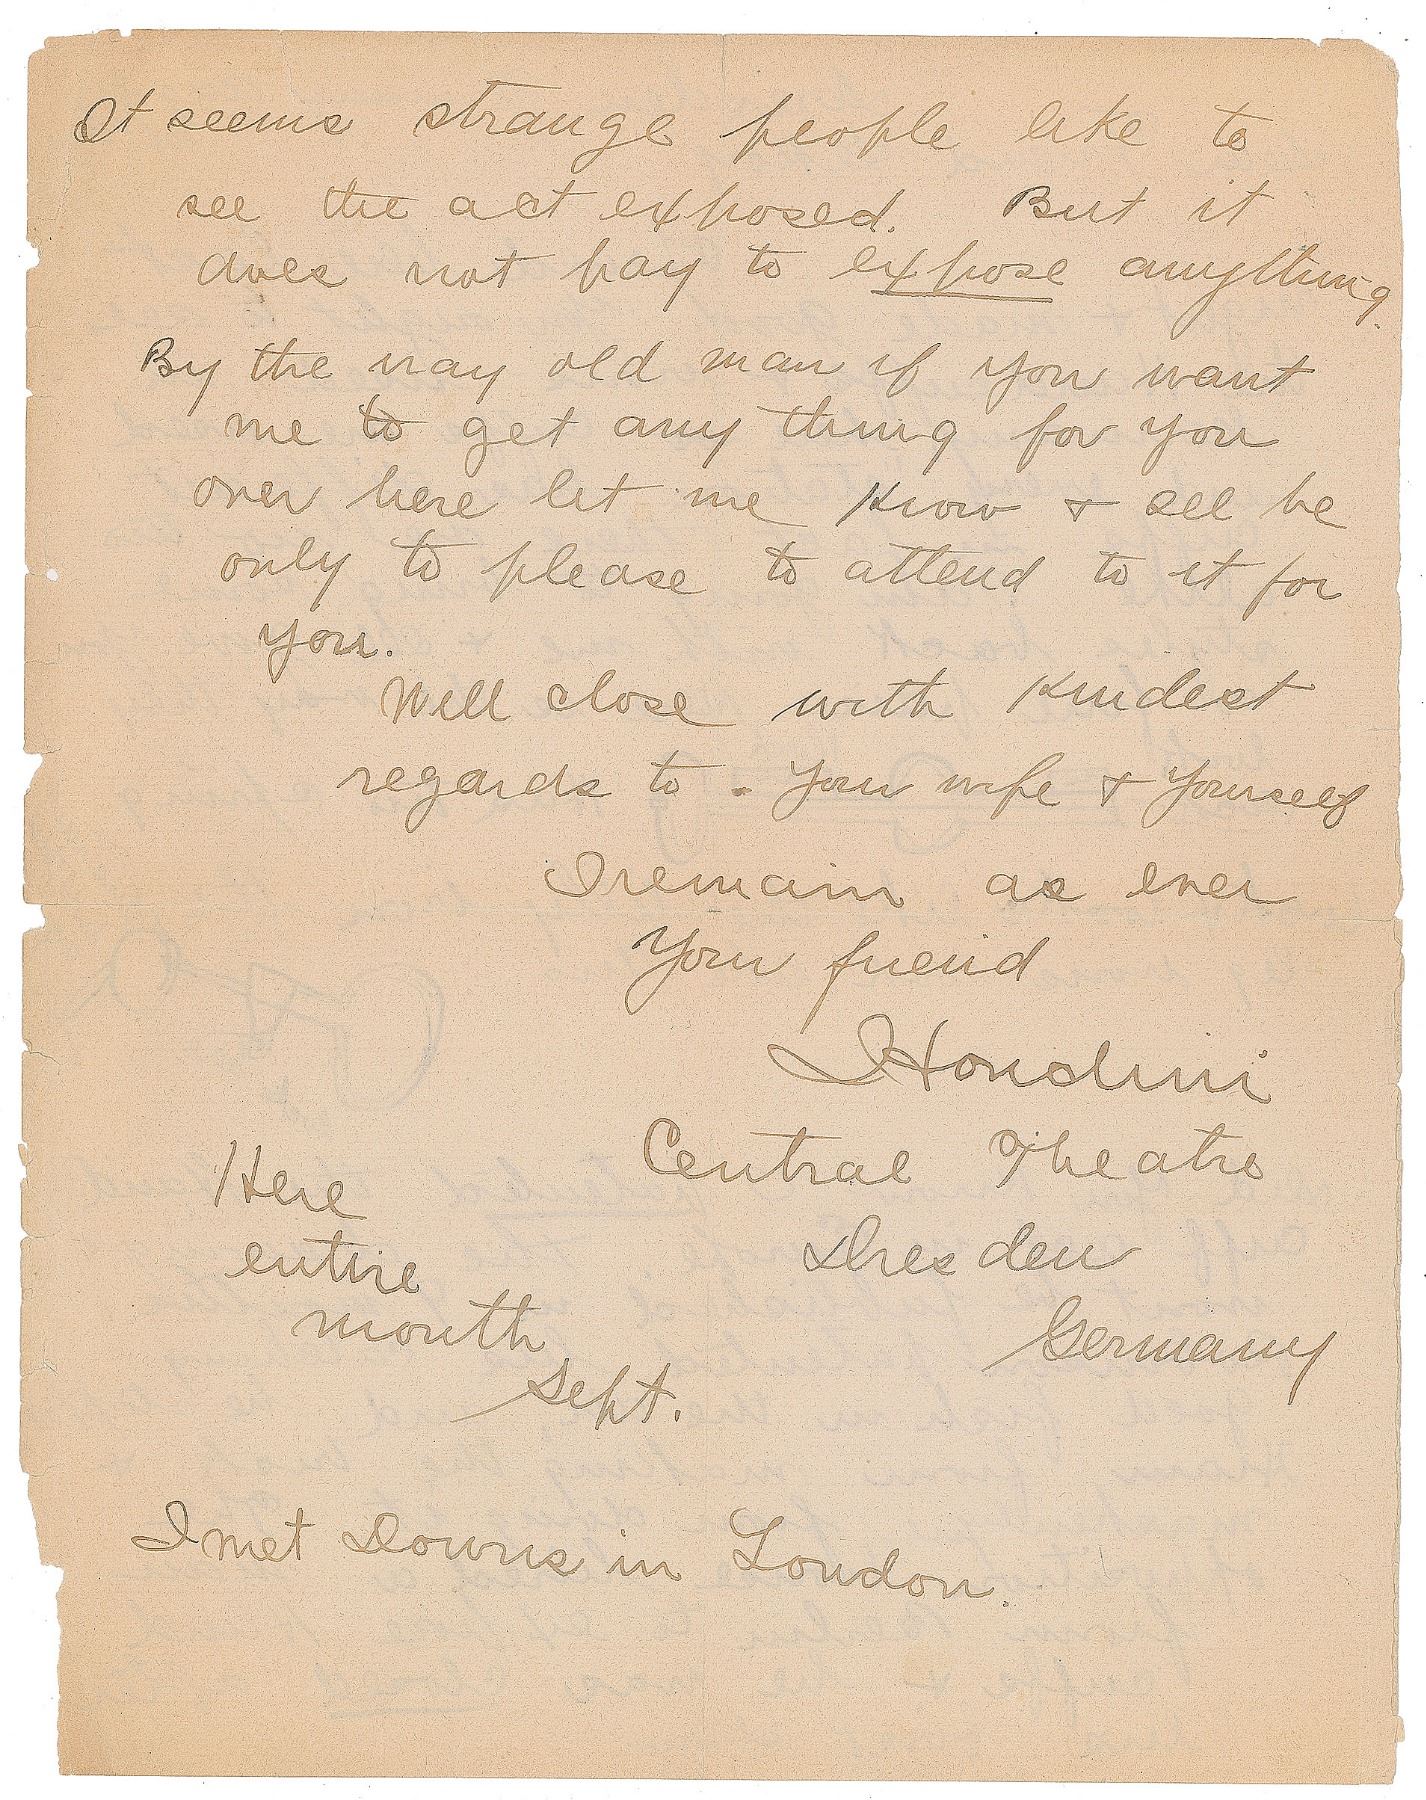 It seems strange people like to
see the act exposed. But it
does not pay to expose anything.
By the way old man if you want
me to get any thing for you
over here let me know & Ill be
only to please to attend to it for
you.
Will close with kindest
regards to . your wife & yourself
I remain as ever
Your friend
Houdini
Central Theatre
Dresden
Germany
Here
entire
month
Sept.
I met Downs in London.